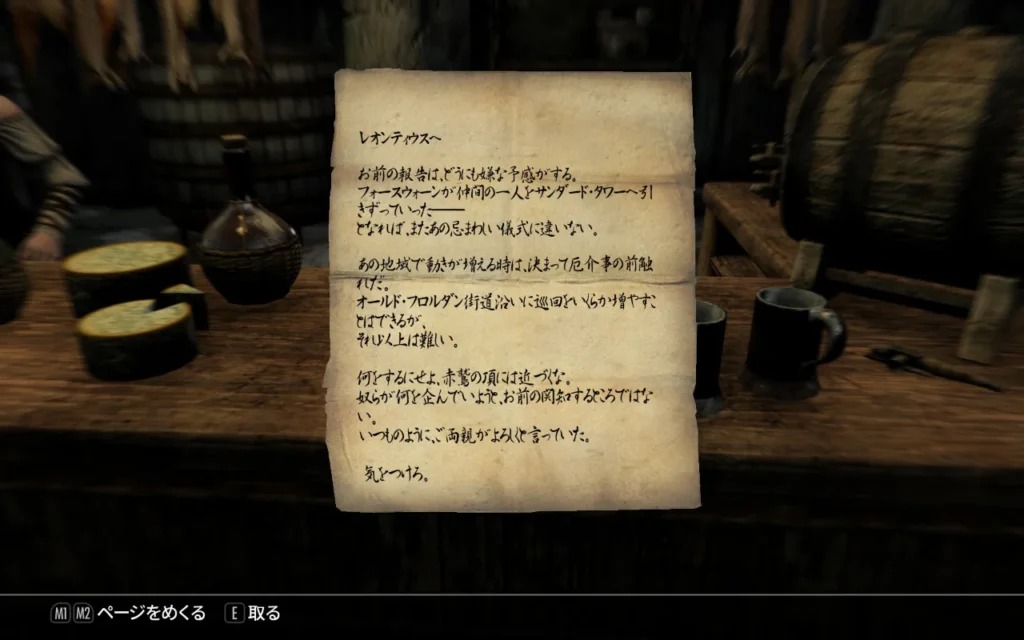 レオンティウスへ
お前の報告は、どうにも嫌な予感がする。
フォースウォーンが仲間の一人をサンダード・タワーへ引
きずっていった――
となれば、またあの忌まわしい儀式に違いない。
あの地域で動きが増える時は、決まって厄介事の前触
れだ。
オールド・フロルダン街道沿いに巡回をいくらか増やすこ
とはできるが、
それ以上は難しい。
何をするにせよ、赤鷲の頂には近づくな。
奴らが何を企んでいようと、お前の関知するところではな
い。
いつものように、ご両親がよろしくと言っていた。
気をつけろ。
M1 M2 ページをめくる E 取る